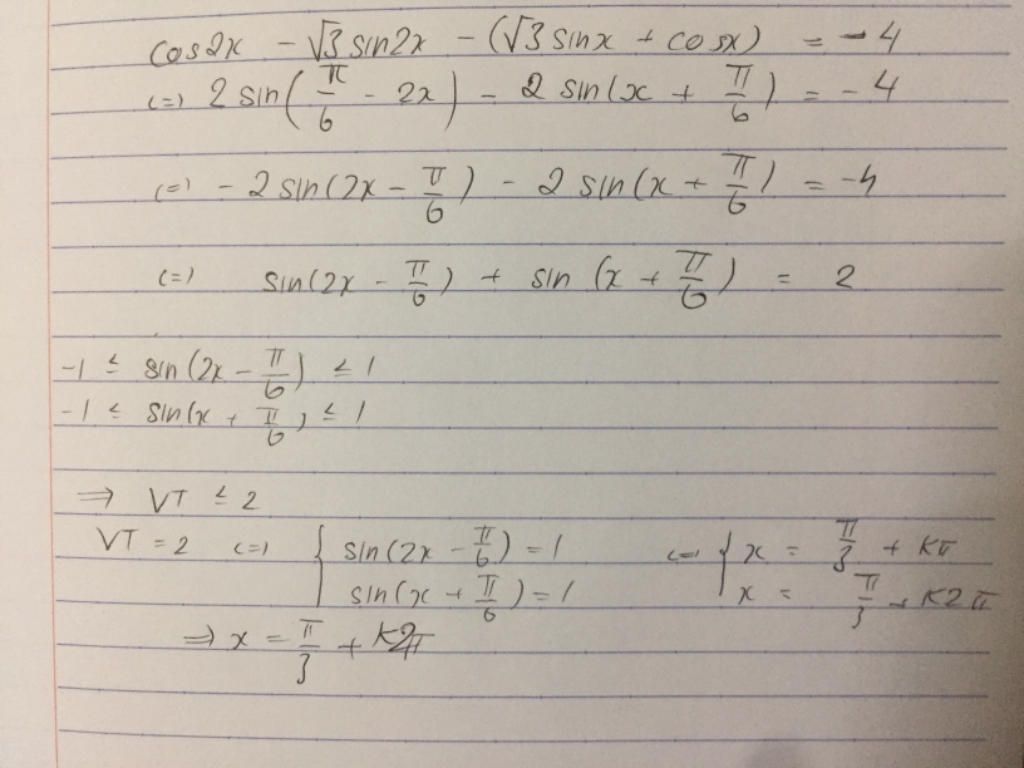 cos2x - √3 sin2x - (√3 sinx + cosx) = -4
<=> 2 sin(π/6 - 2x) - 2 sin(x + π/6) = -4
<=> -2 sin(2x - π/6) - 2 sin(x + π/6) = -4
<=> sin(2x - π/6) + sin (x + π/6) = 2
-1 ≤ sin(2x - π/6) ≤ 1
-1 ≤ sin(x + π/6) ≤ 1
=> VT ≤ 2
VT = 2 <=> { sin(2x - π/6) = 1 <=> { x = π/3 + kπ
sin(x + π/6) = 1 x = π/3 + k2π
=> x = π/3 + k2π